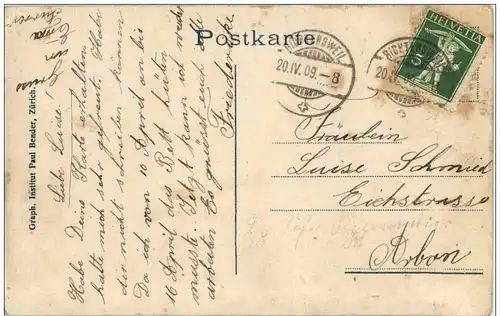 Postkarte
HELVETIA
5
RICHTERSWEIL
20.IV.09.-8
RICHTERSWEIL
20.
Fräulein
Luise Schmied
Eichstrasse
Arbon
Graph. Institut Paul Bender, Zürich.
Liebe Luise
Habe Deine Karte erhalten
hatte mich sehr gefreut. Habe
dir nicht schreiben können
Da ich von 10 April an bis
16 April das Bett hüten
musste. Jetzt kann ich wieder
arbeiten Es grüsst euch alle
Friederike
Gruss
an